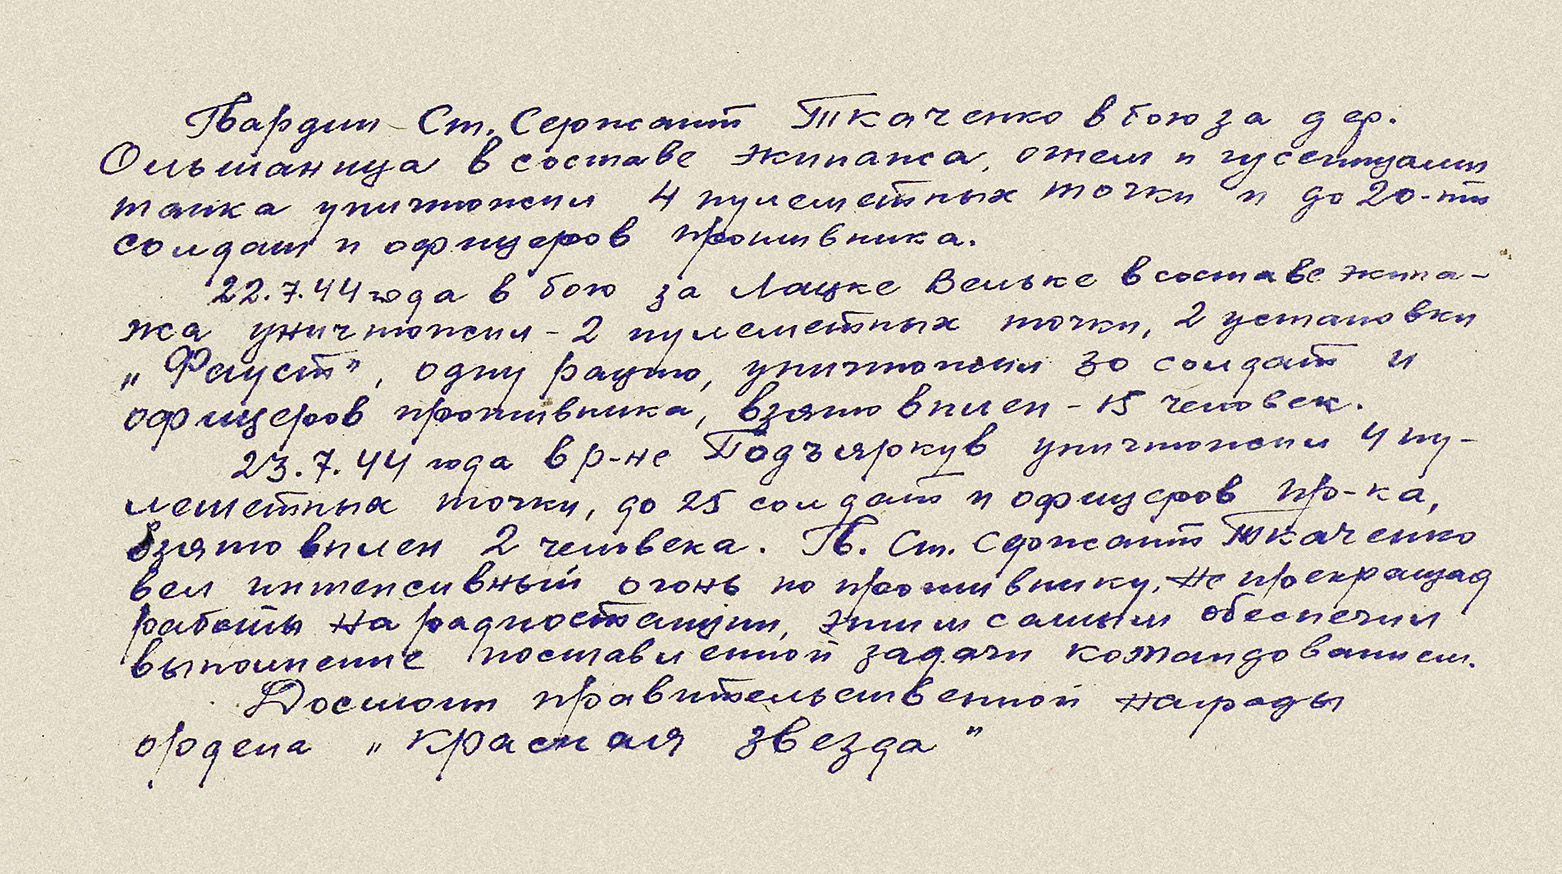 Гвардии Ст. Сержант Ткаченко в бою за дер.
Ольшаница в составе экипажа, огнем и гусеницами
танка уничтожил 4 пулеметных точки и до 20-ти
солдат и офицеров противника.
22.7.44 года в бою за Лацке Вельке в составе экипа-
жа уничтожил - 2 пулеметных точки, 2 установки
„Фауст", одну рацию, уничтожил 30 солдат и
офицеров противника, взято в плен - 15 человек.
23.7.44 года в р-не Подъяркув уничтожил 4 пу-
леметных точки, до 25 солдат и офицеров пр-ка,
взято в плен 2 человека. Гв. Ст. Сержант Ткаченко
вел интенсивный огонь по противнику, не прекращая
работы на радиостанции, этим самым обеспечил
выполнение поставленной задачи командованием.
Достоин правительственной награды
ордена „Красная звезда"